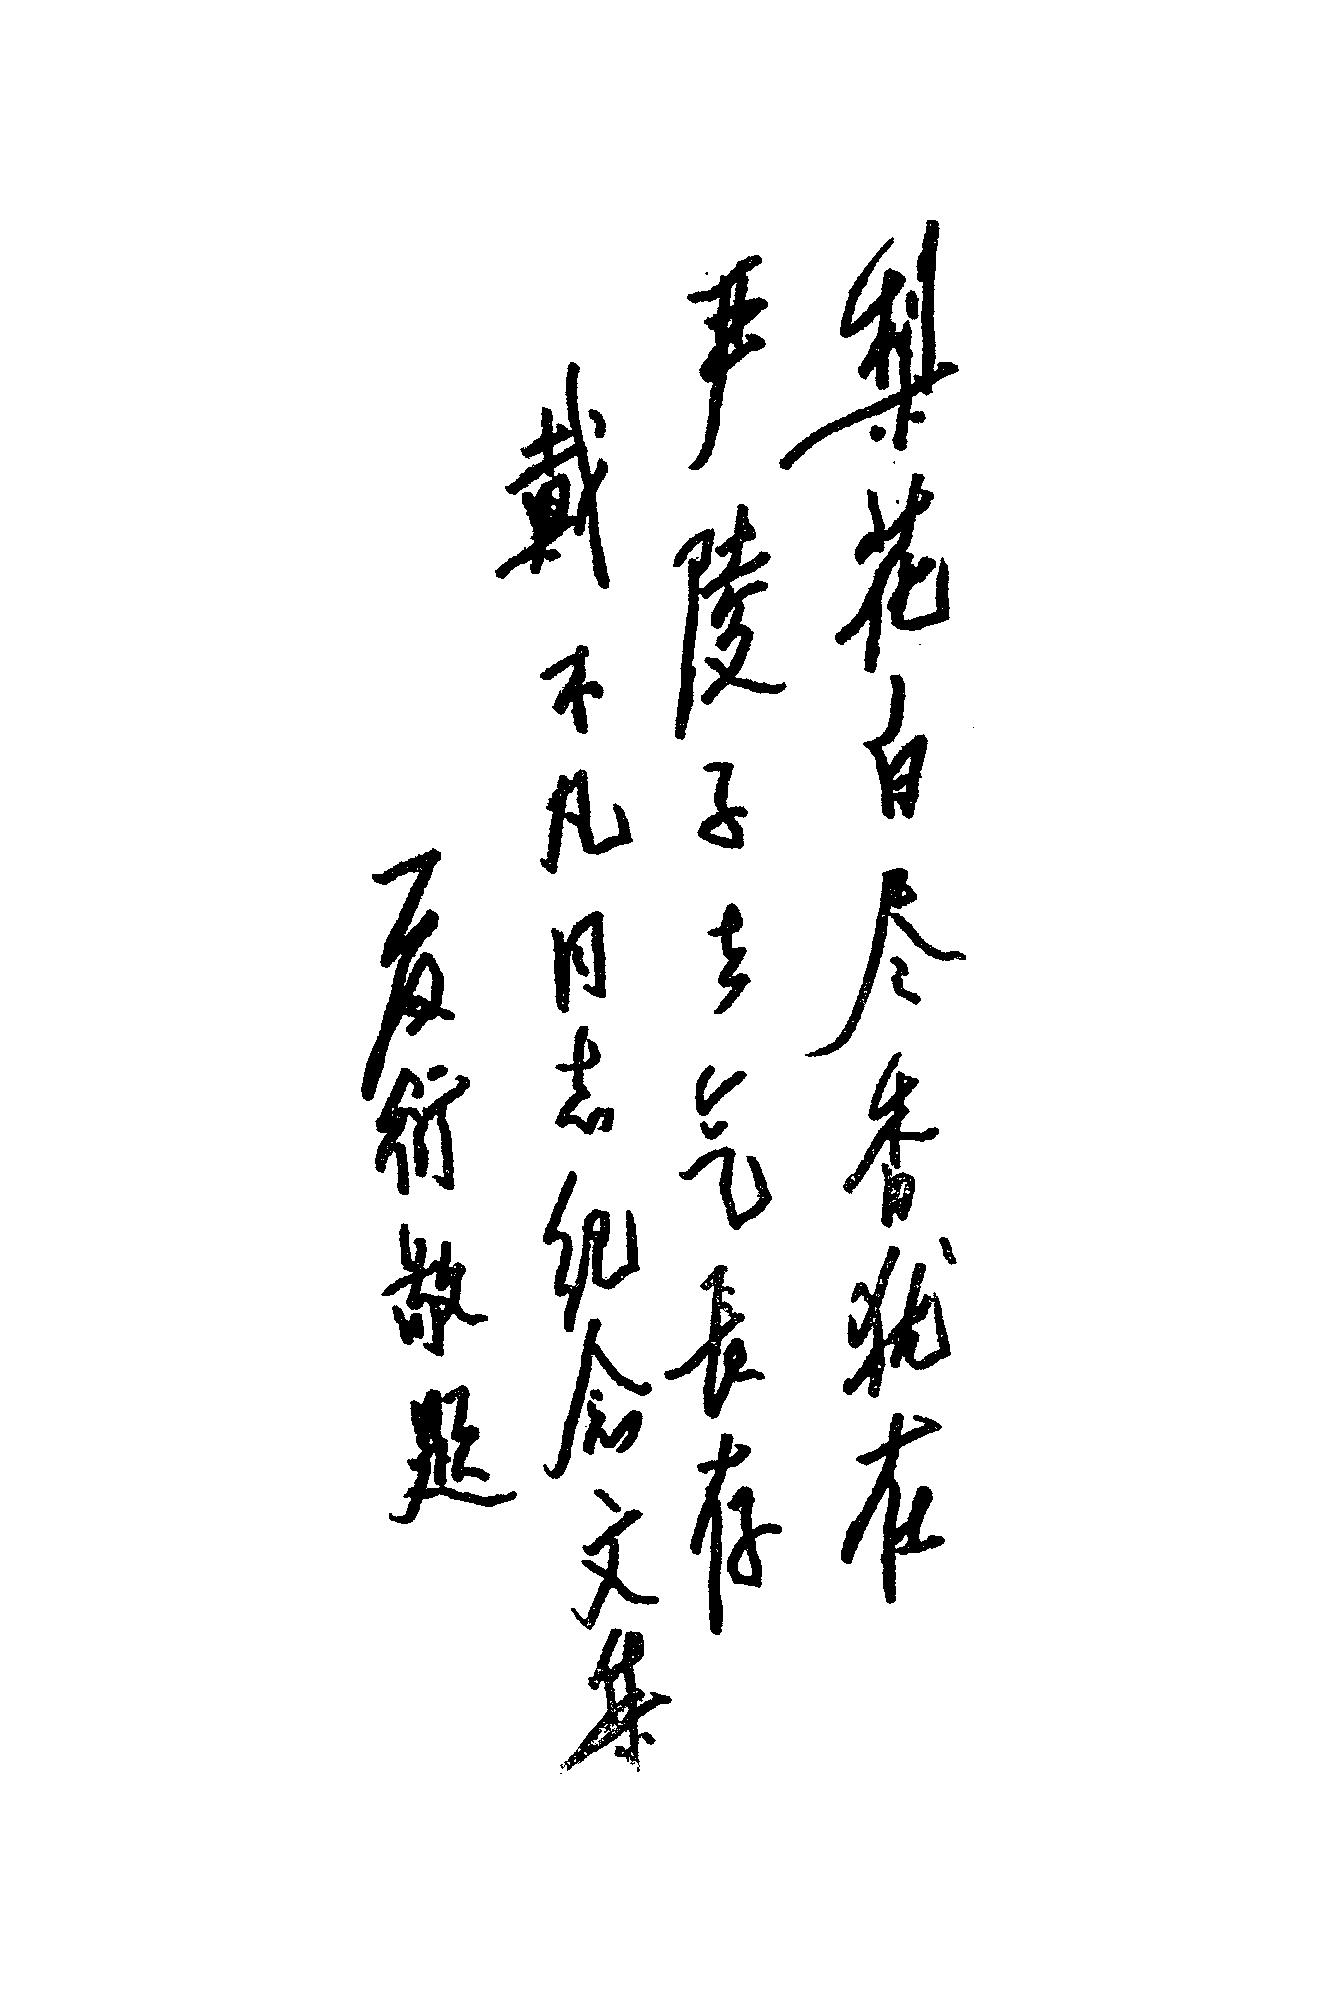 梨花白尽香犹在
严陵子去气長存
戴不凡同志纪念文集
夏衍敬题